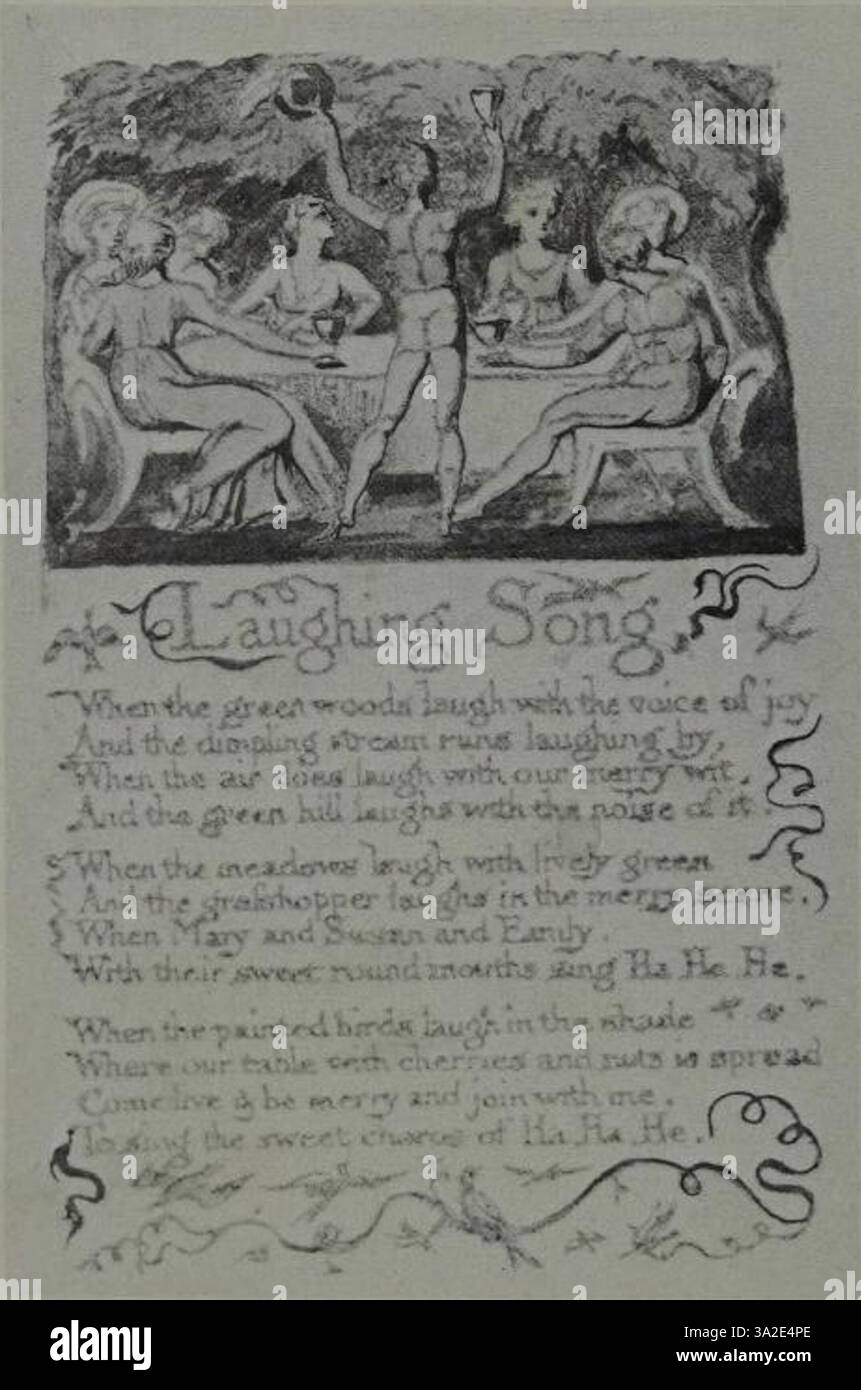 Laughing Song
When the green woods laugh with the voice of joy
And the dimpling stream runs laughing by,
When the air does laugh with our merry wit,
And the green hill laughs with the noise of it.
When the meadows laugh with lively green
And the graſshopper laughs in the merry
When Mary and Susan and Emily,
With their sweet round mouths sing Ha, Ha, He.
When the painted birds laugh in the shade
Where our table with cherries and nuts is spread
Come live & be merry and join with me,
To sing the sweet chorus of Ha, Ha, He.
alamy
alamy
alamy
Image ID: 3A2E4PE
www.alamy.com